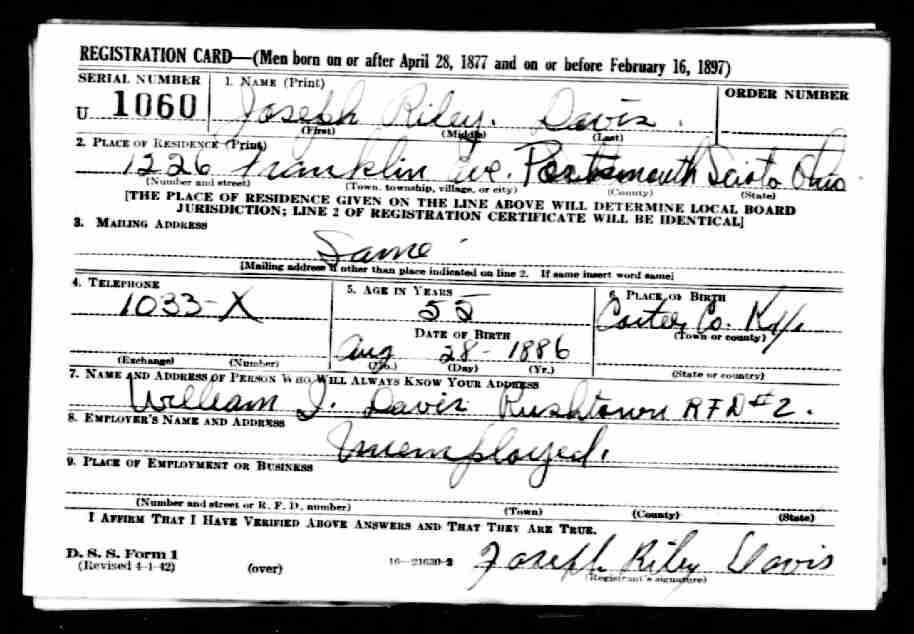 REGISTRATION CARD—(Men born on or after April 28, 1877 and on or before February 16, 1897)
SERIAL NUMBER 1. NAME (Print) ORDER NUMBER
U 1060 Joseph Riley. Davis.
(First) (Middle) (Last)
2. PLACE OF RESIDENCE (Print)
1226 Franklin Ave. Portsmouth Scioto Ohio
(Number and street) (Town, township, village, or city) (County) (State)
[THE PLACE OF RESIDENCE GIVEN ON THE LINE ABOVE WILL DETERMINE LOCAL BOARD
JURISDICTION; LINE 2 OF REGISTRATION CERTIFICATE WILL BE IDENTICAL]
3. MAILING ADDRESS
Same
[Mailing address if other than place indicated on line 2. If same insert word same]
4. TELEPHONE 5. AGE IN YEARS 6. PLACE OF BIRTH
1033-X 55 Carter Co. Ky.
DATE OF BIRTH (Town or county)
Aug 28- 1886
(Exchange) (Number) (Mo.) (Day) (Yr.) (State or country)
7. NAME AND ADDRESS OF PERSON WHO WILL ALWAYS KNOW YOUR ADDRESS
William I. Davis Rushtown RFD #2.
8. EMPLOYER'S NAME AND ADDRESS
Unemployed.
9. PLACE OF EMPLOYMENT OR BUSINESS
(Number and street or R. F. D. number) (Town) (County) (State)
I AFFIRM THAT I HAVE VERIFIED ABOVE ANSWERS AND THAT THEY ARE TRUE.
D. S. S. Form 1
(Revised 4-1-42) (over) 16—21630-2 Joseph Riley Davis
(Registrant's signature)